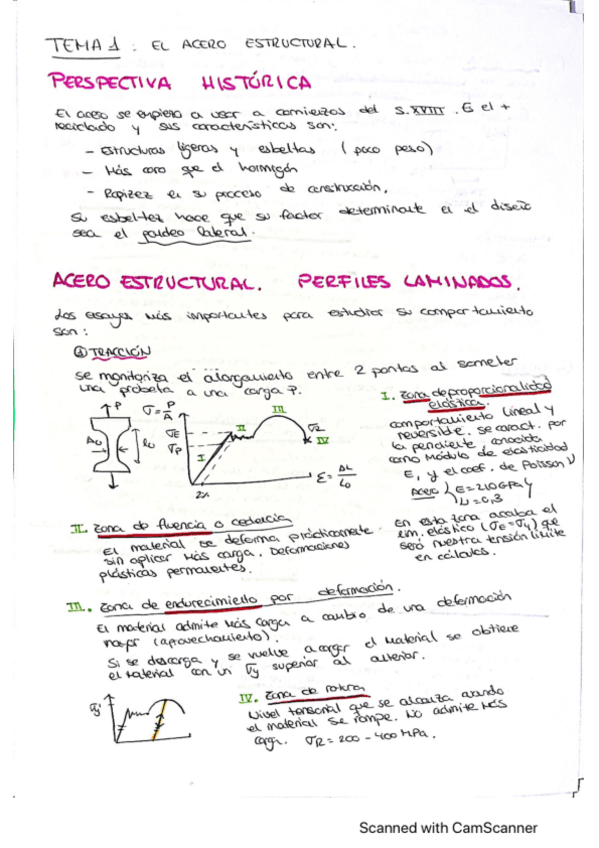 TEMA 1 : EL ACERO ESTRUCTURAL.
PERSPECTIVA HISTÓRICA
El acero se empieza a usar a comienzos del S.XVIII. Es el +
reciclado y sus características son:
- Estructuras ligeras y esbeltas (poco peso)
- Más caro que el hormigón
- Rapidez en su proceso de construcción.
Su esbeltez hace que su factor determinante en el diseño
sea el pandeo lateral.
ACERO ESTRUCTURAL. PERFILES LAMINADOS.
Los ensayos más importantes para estudiar su comportamiento
son:
① TRACCIÓN
Se monitoriza el alargamiento entre 2 puntos al someter
una probeta a una carga P.
P
A0
l0
P
σ = P/A
σE
σP
I
II
III
σR
IV
ε = ΔL/L0
I. Zona de proporcionalidad
elástica.
comportamiento lineal y
reversible. Se caract. por
la pendiente conocida
como módulo de elasticidad
E, y el coef. de Poisson ν
Acero { E = 210 GPa y
ν = 0,3
En esta zona acaba el
lím. elástico (σE = σy) que
será nuestra tensión límite
en cálculos.
II. Zona de fluencia o cedencia
El material se deforma prácticamente
sin aplicar más carga. Deformaciones
plásticas permanentes.
III. Zona de endurecimiento por deformación.
El material admite más carga a cambio de una deformación
mayor (aprovechamiento).
Si se descarga y se vuelve a cargar el material se obtiene
el material con un σy superior al anterior.
σy'
IV. Zona de rotura
Nivel tensional que se alcanza cuando
el material se rompe. No admite más
carga. σR = 200 - 400 MPa.
Scanned with CamScanner